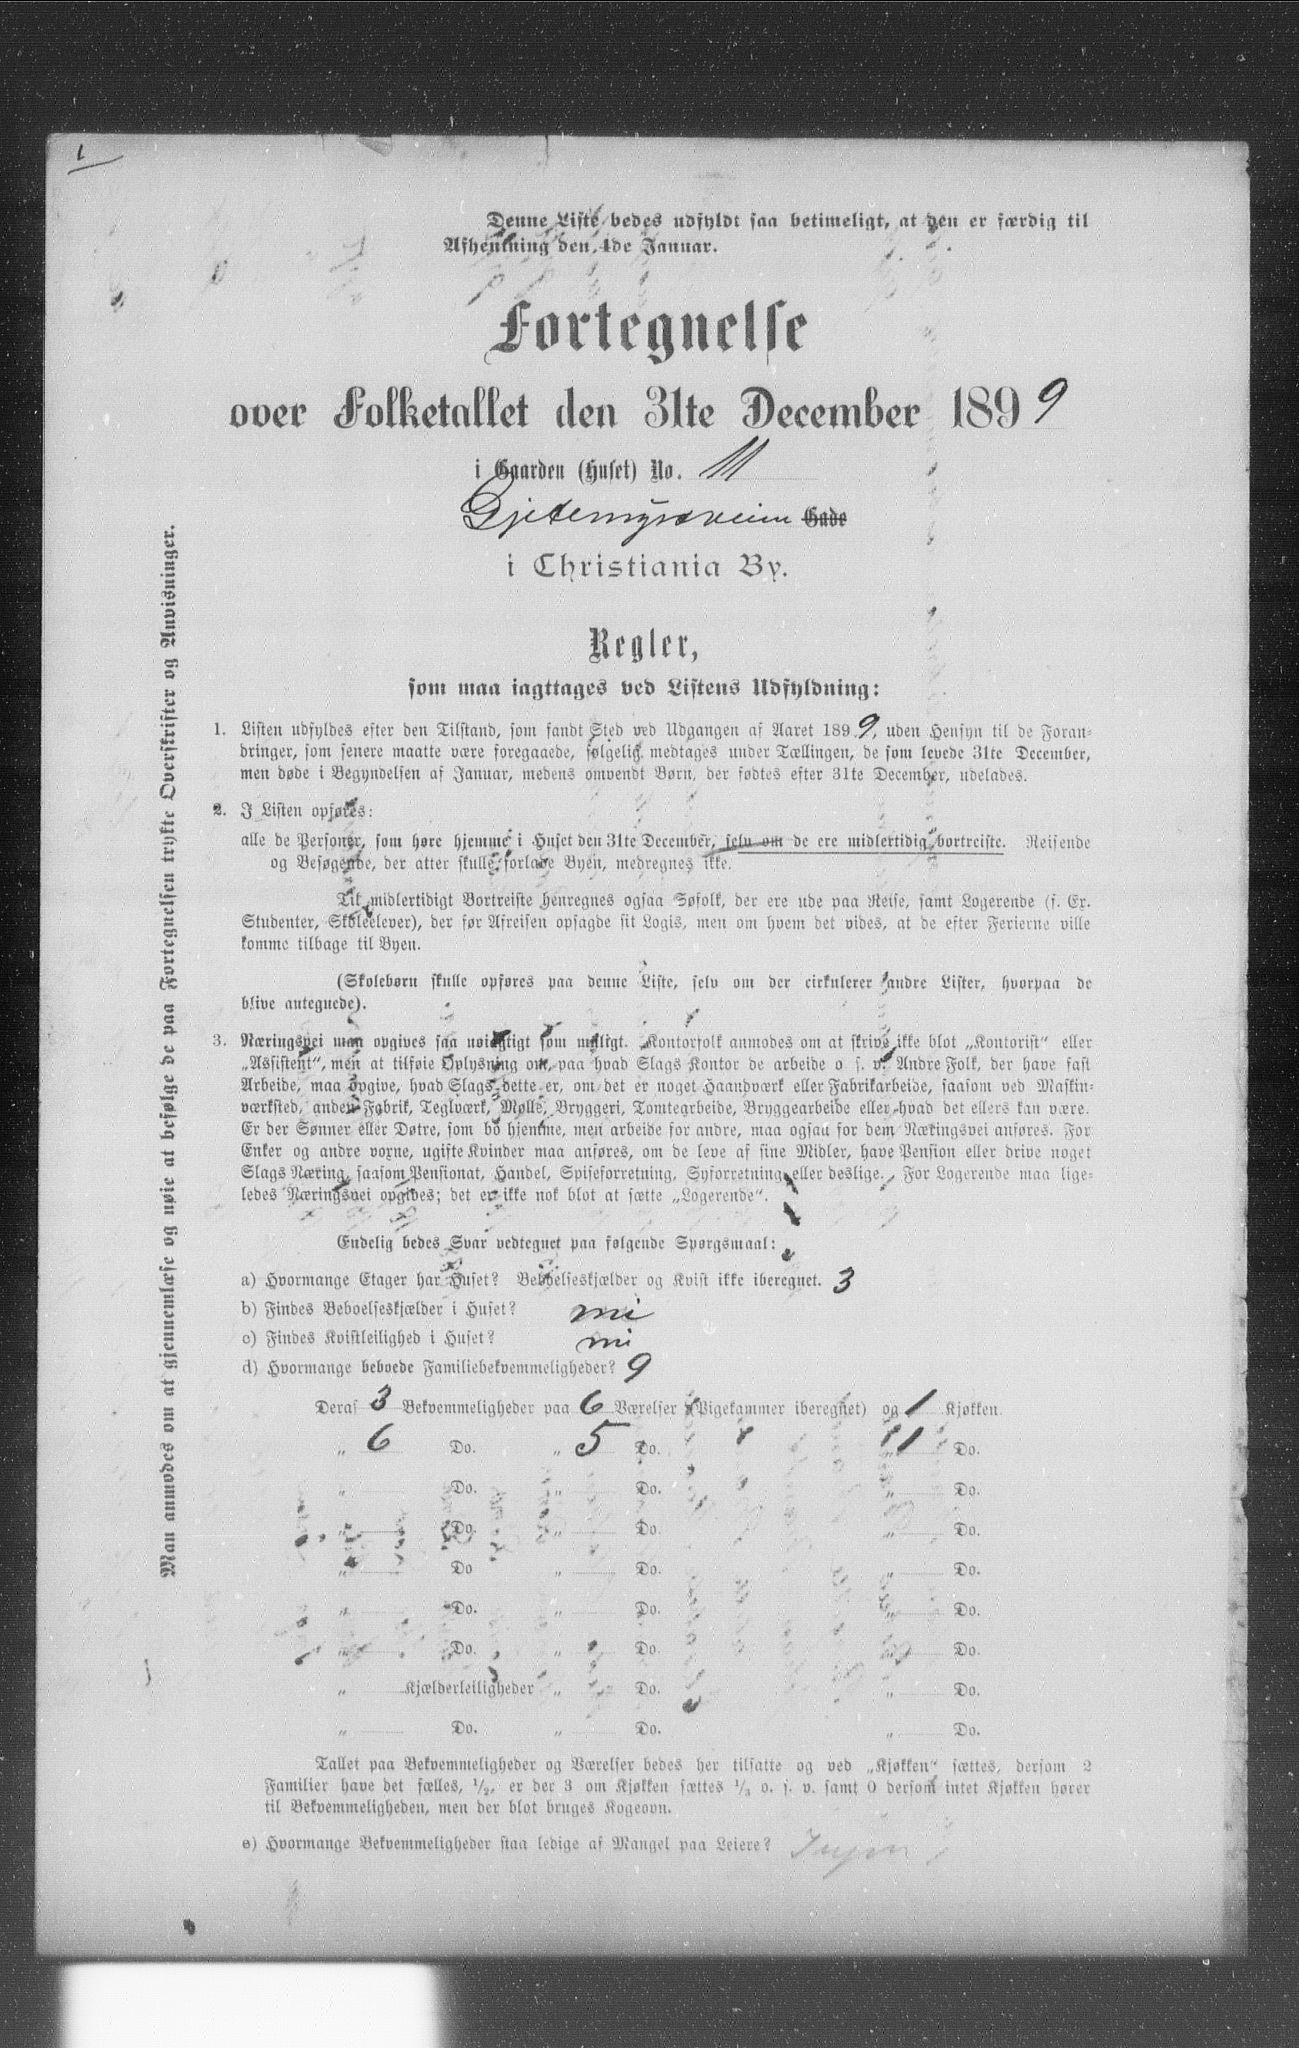 1
Denne Liste bedes udfyldt saa betimeligt, at den er færdig til
Afhentning den 4de Januar.
Fortegnelse
over Folketallet den 31te December 1899
i Gaarden (Huset) No. 11
Gjetemyrsveien Gade
i Christiania By.
Regler,
som maa iagttages ved Listens Udfyldning:
1. Listen udfyldes efter den Tilstand, som fandt Sted ved Udgangen af Aaret 1899, uden Hensyn til de Foran-
dringer, som senere maatte være foregaaede, følgelig medtages under Tællingen, de som levede 31te December,
men døde i Begyndelsen af Januar, medens omvendt Børn, der fødtes efter 31te December, udelades.
2. I Listen opføres:
alle de Personer, som høre hjemme i Huset den 31te December, selv om de ere midlertidig bortreiste. Reisende
og Besøgende, der atter skulle forlade Byen, medregnes ikke.
Til midlertidigt Bortreiste henregnes ogsaa Søfolk, der ere ude paa Reise, samt Logerende (f. Ex.
Studenter, Skoleelever), der før Afreisen opsagde sit Logis, men om hvem det vides, at de efter Ferierne ville
komme tilbage til Byen.
(Skolebørn skulle opføres paa denne Liste, selv om der cirkulerer andre Lister, hvorpaa de
blive antegnede).
3. Næringsvei maa opgives saa nøiagtigt som muligt. Kontorfolk anmodes om at skrive ikke blot „Kontorist“ eller
„Assistent“, men at tilføie Oplysning om, paa hvad Slags Kontor de arbeide o s. v. Andre Folk, der have fast
Arbeide, maa opgive, hvad Slags dette er, om det er noget Haandværk eller Fabrikarbeide, saasom ved Maskin-
værksted, anden Fabrik, Teglværk, Mølle, Bryggeri, Tomtearbeide, Bryggearbeide eller hvad det ellers kan være.
Er der Sønner eller Døtre, som bo hjemme, men arbeide for andre, maa ogsaa for dem Næringsvei anføres. For
Enker og andre voxne, ugifte Kvinder maa anføres, om de leve af sine Midler, have Pension eller drive noget
Slags Næring, saasom Pensionat, Handel, Spiseforretning, Syforretning eller deslige. For Logerende maa lige-
ledes Næringsvei opgives; det er ikke nok blot at sætte „Logerende“.
Endelig bedes Svar vedtegnet paa følgende Spørgsmaal:
a) Hvormange Etager har Huset? Beboelseskjælder og Kvist ikke iberegnet. 3
b) Findes Beboelseskjælder i Huset?
c) Findes Kvistleilighed i Huset?
d) Hvormange beboede Familiebekvemmeligheder? 9
Deraf 3 Bekvemmeligheder paa 6 Værelser (Pigekammer iberegnet) og 1 Kjøkken.
„ 6 Do. „ 5 Do. „ 1 Do.
„ Do. „ Do. „ Do.
„ Do. „ Do. „ Do.
„ Do „ Do. „ Do.
„ Do. „ Do. „ Do.
„ Do. „ Do. „ Do.
„ Kjælderleiligheder „ Do. „ Do.
„ Do. „ Do. „ Do.
Tallet paa Bekvemmeligheder og Værelser bedes her tilsatte og ved „Kjøkken“ sættes, dersom 2
Familier have det fælles, 1/2, er der 3 om Kjøkken sættes 1/3 o. s. v. samt 0 dersom intet Kjøkken hører
til Bekvemmeligheden, men der blot bruges Kogeovn.
e) Hvormange Bekvemmeligheder staa ledige af Mangel paa Leiere? Ingen
Man anmodes om at gjennemlæse og nøie at befølge de paa Fortegnelsen trykte Overskrifter og Anvisninger.